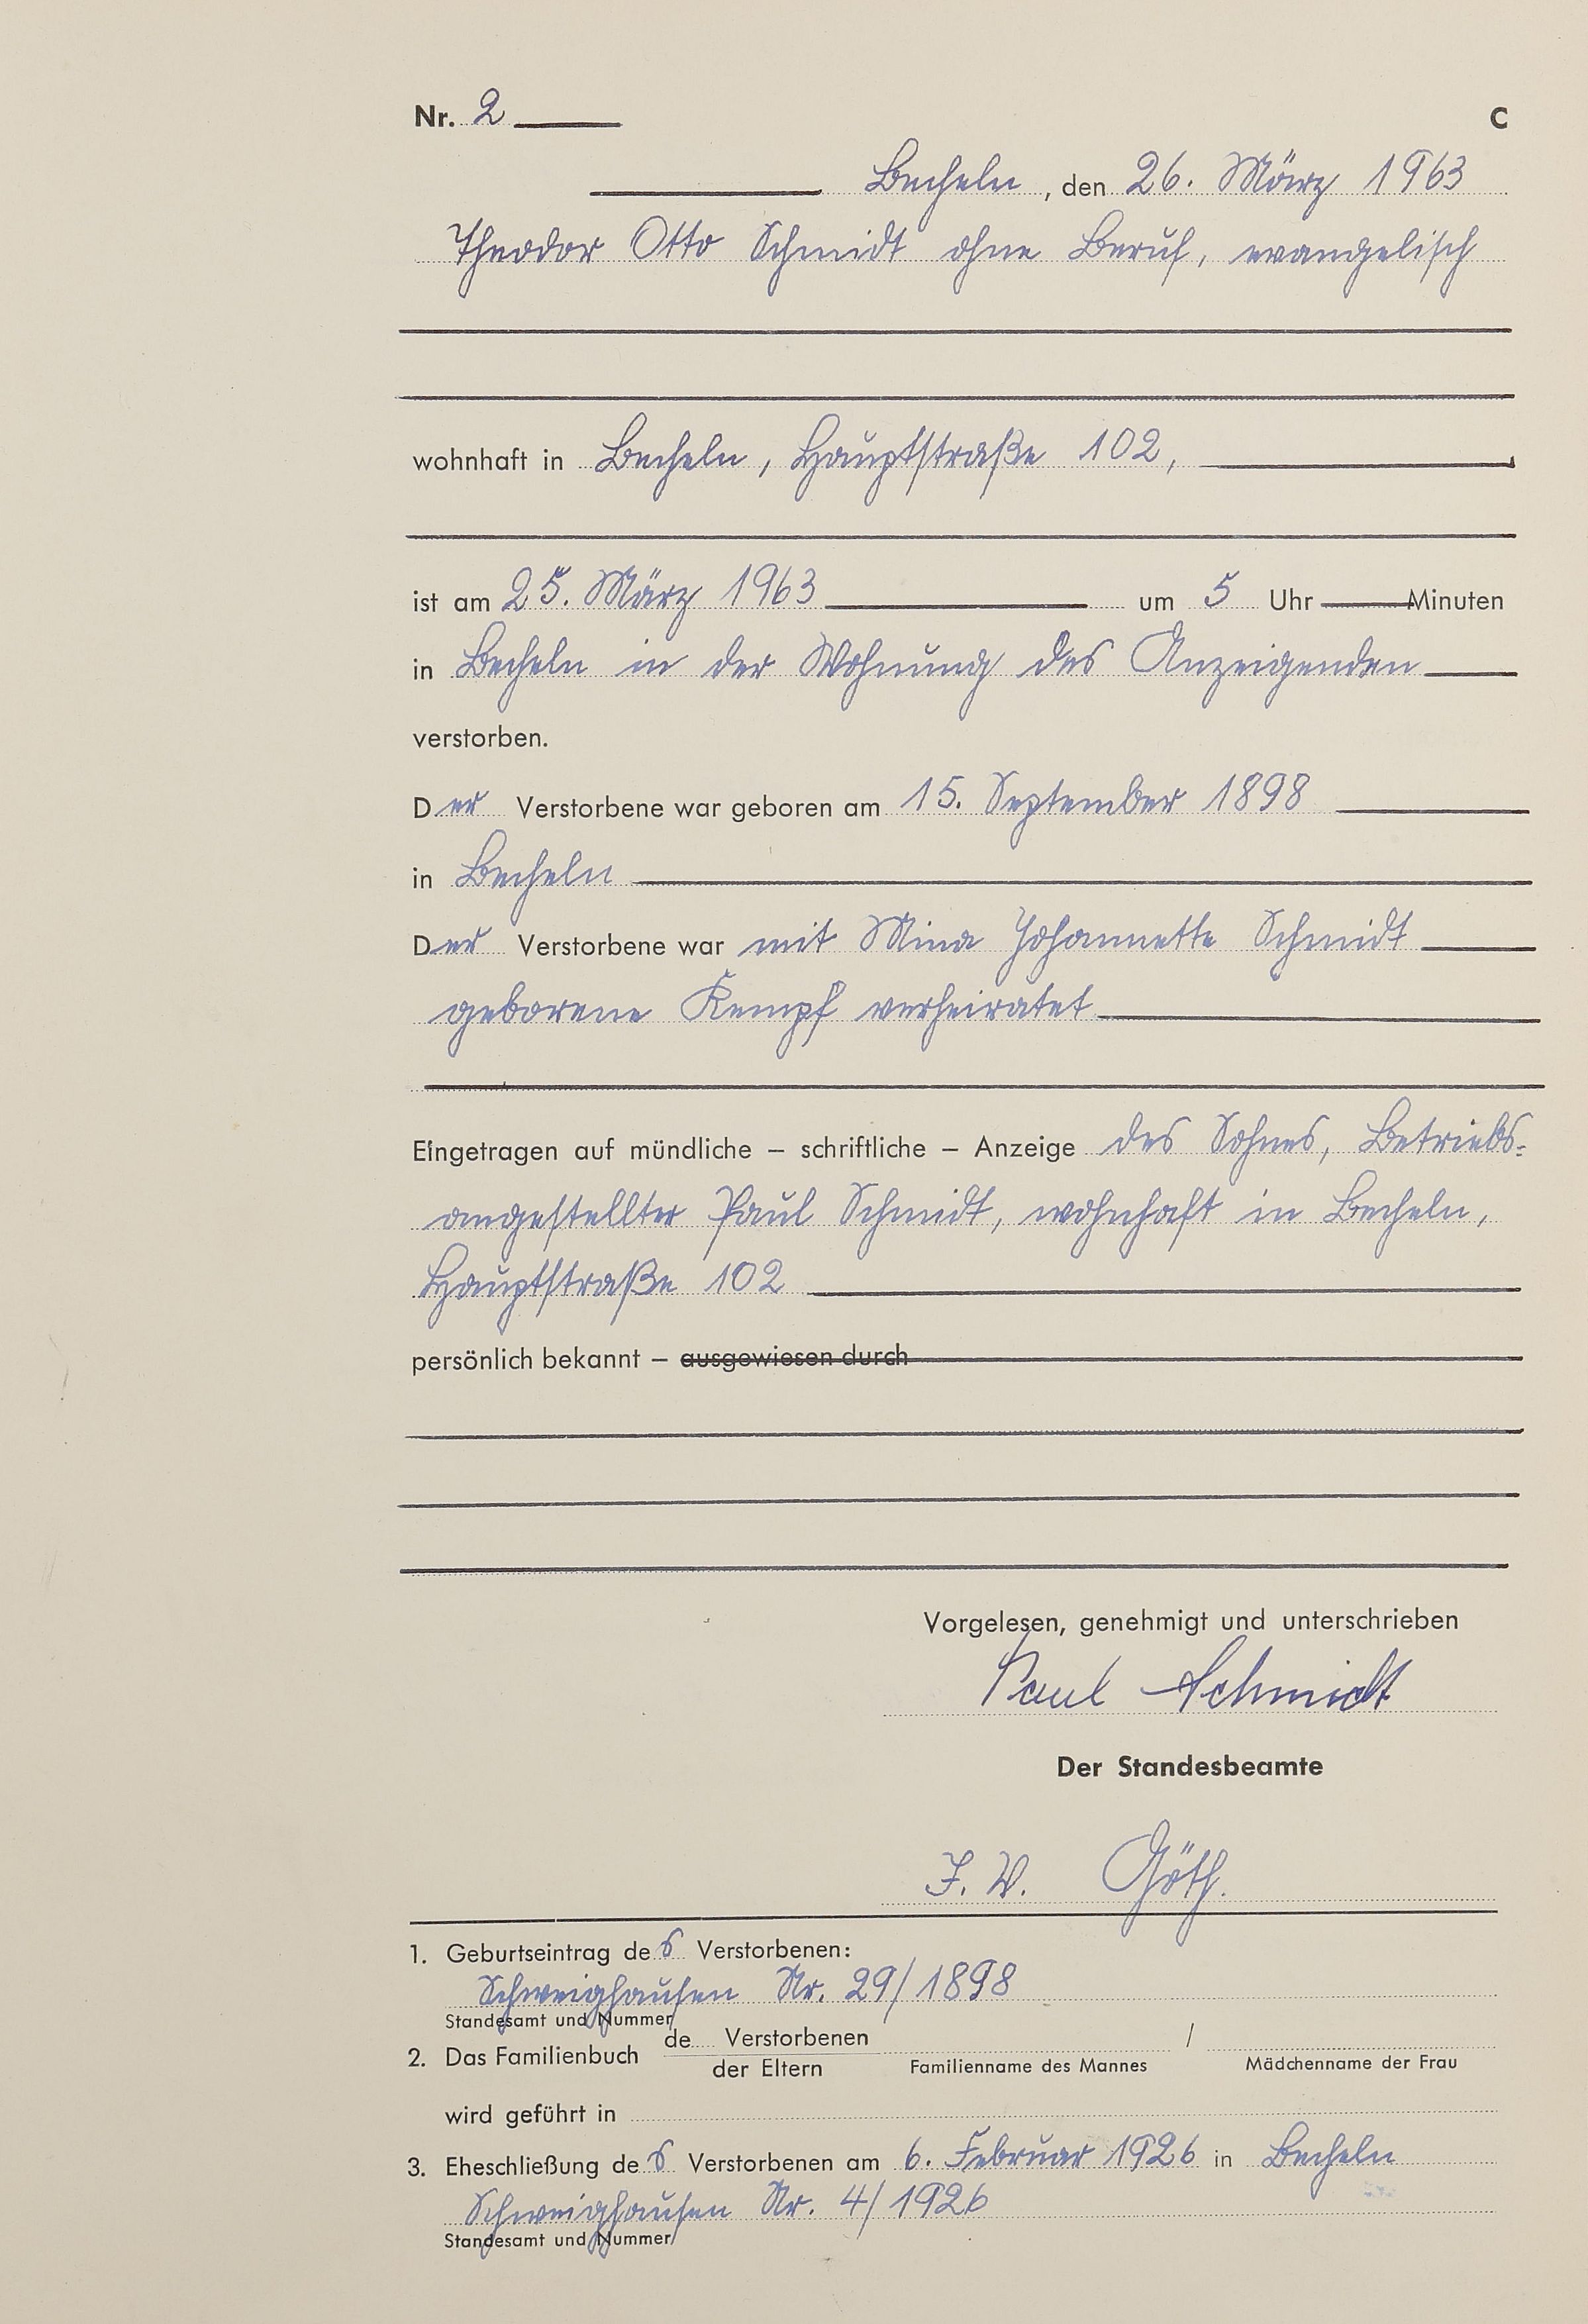 Nr. 2 C
Becheln, den 26. März 1963
Theodor Otto Schmidt ohne Beruf, evangelisch
wohnhaft in Becheln, Hauptstraße 102,
ist am 25. März 1963 um 5 Uhr Minuten
in Becheln in der Wohnung des Anzeigenden
verstorben.
Der Verstorbene war geboren am 15. September 1898
in Becheln
Der Verstorbene war mit Mina Johannette Schmidt
geborene Kempf verheiratet
Eingetragen auf mündliche – schriftliche – Anzeige des Sohnes, Betriebs-
angestellter Paul Schmidt, wohnhaft in Becheln,
Hauptstraße 102
persönlich bekannt – ausgewiesen durch
Vorgelesen, genehmigt und unterschrieben
Paul Schmidt
Der Standesbeamte
J. V. Göth.
1. Geburtseintrag des Verstorbenen:
Schweighausen Nr. 29/1898
Standesamt und Nummer
2. Das Familienbuch de Verstorbenen /
der Eltern Familienname des Mannes Mädchenname der Frau
wird geführt in
3. Eheschließung des Verstorbenen am 6. Februar 1926 in Becheln
Schweighausen Nr. 4/1926
Standesamt und Nummer